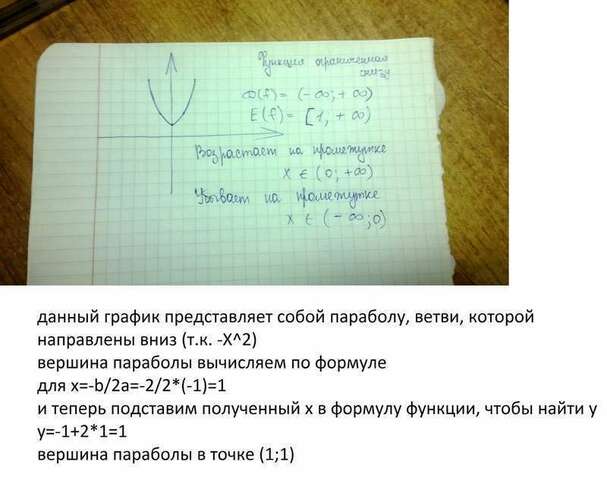 Функция ограниченная
снизу
D(f)= (-∞; +∞)
E(f)= [1, +∞)
Возрастает на промежутке
x ∈ (0; +∞)
Убывает на промежутке
x ∈ (-∞; 0)
данный график представляет собой параболу, ветви, которой
направлены вниз (т.к. -X^2)
вершина параболы вычисляем по формуле
для x=-b/2a=-2/2*(-1)=1
и теперь подставим полученный x в формулу функции, чтобы найти y
y=-1+2*1=1
вершина параболы в точке (1;1)